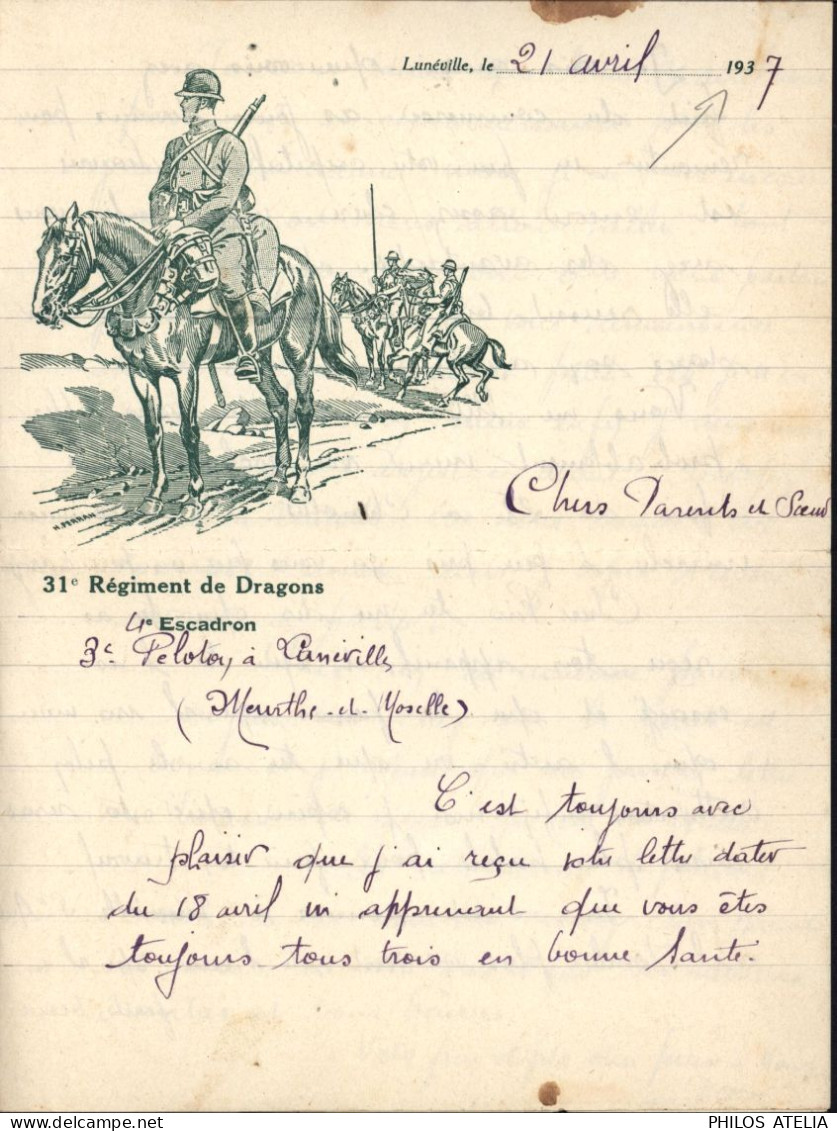 Lunéville, le 21 avril 1937
H. PERRAN
Chers Parents et Soeur
31e Régiment de Dragons
4e Escadron
3e Peloton à Lunéville
(Meurthe-et-Moselle)
C'est toujours avec
plaisir que j'ai reçu votre lettre dater
du 18 avril m apprenant que vous êtes
toujours tous trois en bonne Sante.
PHILOS ATELIA